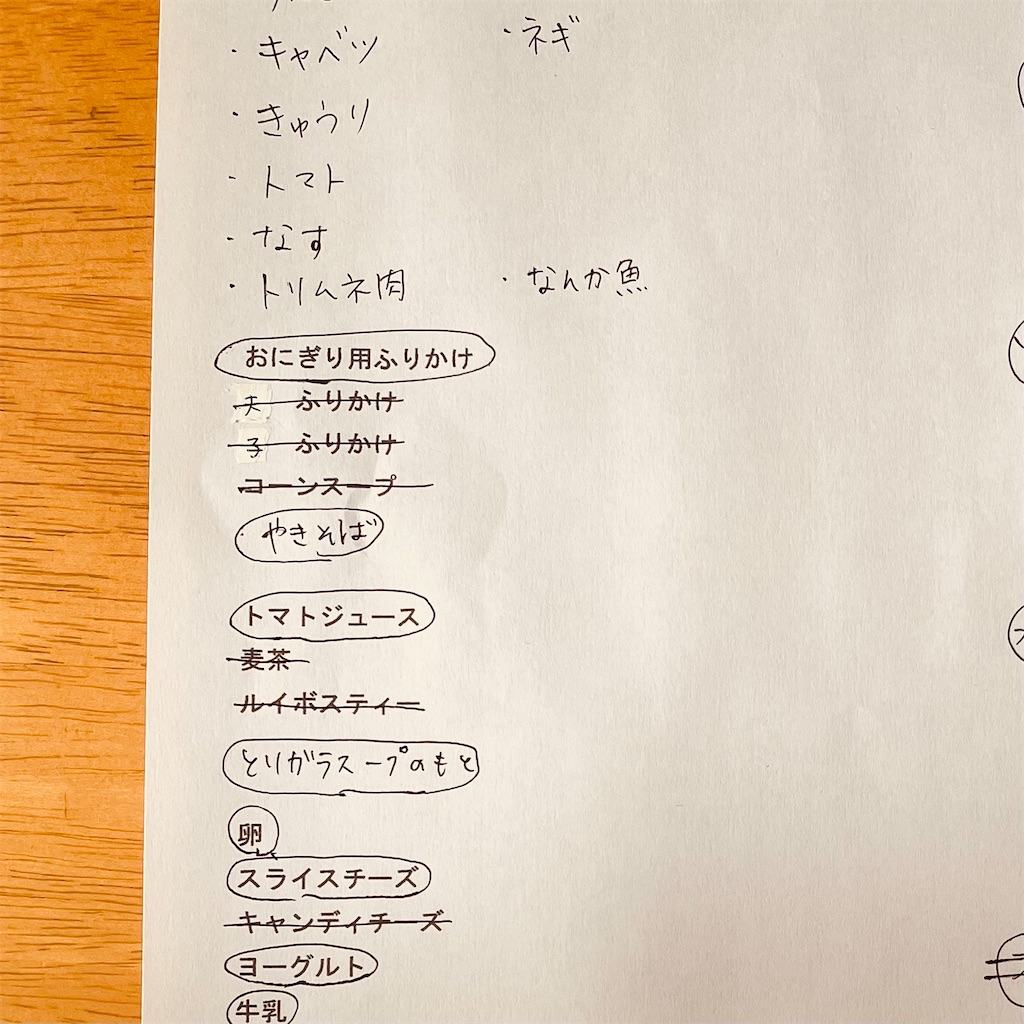 ・キャベツ ・ネギ
・きゅうり
・トマト
・なす
・トリムネ肉 ・なんか魚
おにぎり用ふりかけ
夫 ふりかけ
子 ふりかけ
コーンスープ
やきそば
トマトジュース
麦茶
ルイボスティー
とりガラスープのもと
卵
スライスチーズ
キャンディチーズ
ヨーグルト
牛乳